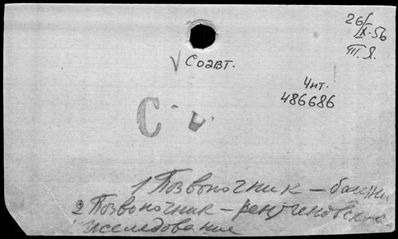 26/IX-56
П.Я.
√ Соавт.
Чит.
486686
С
1 Позвоночник –
2 Позвоночник – рентгеновские
исследования